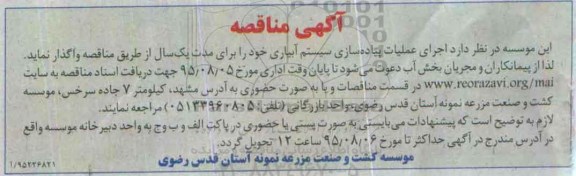 آگهی مناقصه
این موسسه در نظر دارد اجرای عملیات پیاده‌سازی سیستم آبیاری خود را برای مدت یک‌سال از طریق مناقصه واگذار نماید.
لذا از پیمانکاران و مجریان بخش آب دعوت می‌شود تا پایان وقت اداری مورخ ۹۵/۰۸/۰۵ جهت دریافت اسناد مناقصه به سایت
www.reorazavi.org/mai در قسمت مناقصات و یا به صورت حضوری به آدرس مشهد، کیلومتر ۷ جاده سرخس، موسسه
کشت و صنعت مزرعه نمونه آستان قدس رضوی، واحد بازرگانی (تلفن: ۰۵۱۳۳۹۶۰۸۰۵) مراجعه نمایند.
لازم به توضیح است که پیشنهادات می‌بایستی به صورت پستی یا حضوری در پاکت الف و ب و ج به واحد دبیرخانه موسسه واقع
در آدرس مندرج در آگهی حداکثر تا مورخ ۹۵/۰۸/۰۶ ساعت ۱۲ تحویل گردد.
موسسه کشت و صنعت مزرعه نمونه آستان قدس رضوی
۱/۹۵۲۲۶۸۲۱